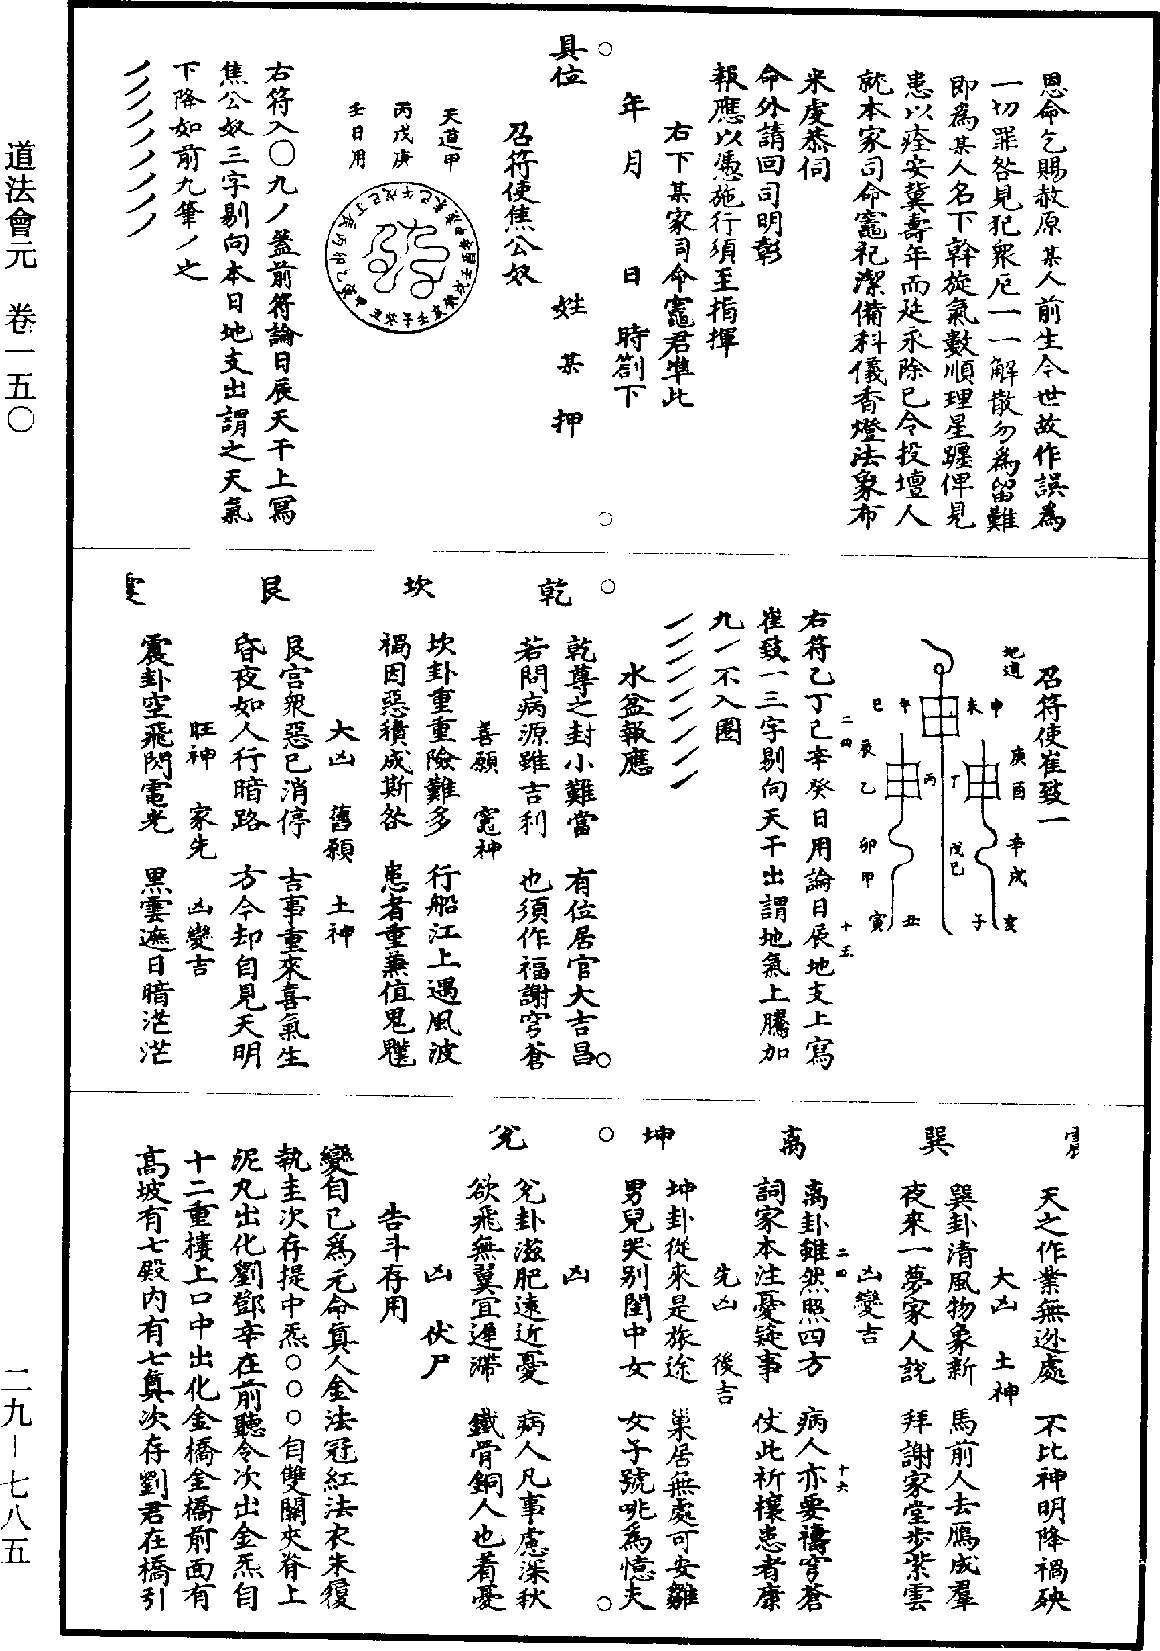 道法會元　卷一五〇
二九－七八五
恩命乞賜赦原某人前生今世故作誤為
一切罪咎見犯眾厄一一解散勿為留難
即為某人名下斡旋氣數順理星躔俾見
患以痊安冀壽年而延永除已令投壇人
就本家司命竈祀潔備科儀香燈法象布
米虔恭伺
命外請回司明彰
報應以憑施行須至指揮
右下某家司命竈君準此
年　月　日　時劄下
具位　姓　某　押
召符使焦公奴
天道甲
丙戊庚
壬日用
右符入〇九丿蓋前符論日辰天干上寫
焦公奴三字剔向本日地支出謂之天氣
下降如前九筆丿也
丿丿丿丿丿丿丿丿丿
召符使崔致一
地道
申
未
午
巳
庚酉
辰
乙
丙
丁
辛戌
戊己
卯甲
寅
丑
子
亥
右符乙丁己辛癸日用論日辰地支上寫
崔致一三字剔向天干出謂地氣上騰加
九一不入圈
水盆報應
乾
乾尊之封小難當　有位居官大吉昌
若問病源雖吉利　也須作福謝穹蒼
善願　竈神
坎
坎卦重重險難多　行船江上遇風波
禍因惡積成斯咎　患者重兼值鬼魔
大凶　舊願　土神
艮
艮宮眾惡已消停　吉事重來喜氣生
昏夜如人行暗路　方今却自見天明
旺神　家先　凶變吉
震卦空飛閃電光　黑雲遮日暗茫茫
震
天之作業無逃處　不比神明降禍殃
大凶　土神
巽
巽卦清風物象新　馬前人去鴈成羣
夜來一夢家人說　拜謝家堂步紫雲
凶變吉
离
离卦雖然照四方　病人亦要禱穹蒼
詞家本注憂疑事　仗此祈禳患者康
先凶　後吉
坤
坤卦從來是旅途　巢居無處可安雛
男兒哭別閨中女　女子號咷為憶夫
凶
兌
兌卦滋肥遠近憂　病人凡事慮深秋
欲飛無翼宜連滯　鐵骨銅人也著憂
凶　伏尸
告斗存用
變自已為元命真人金法冠紅法衣朱履
執圭次存提中炁〇〇〇自雙關夾脊上
泥丸出化劉鄧辛在前聽令次出金炁自
十二重樓上口中出化金橋金橋前面有
高坡有七殿內有七真次存劉君在橋引